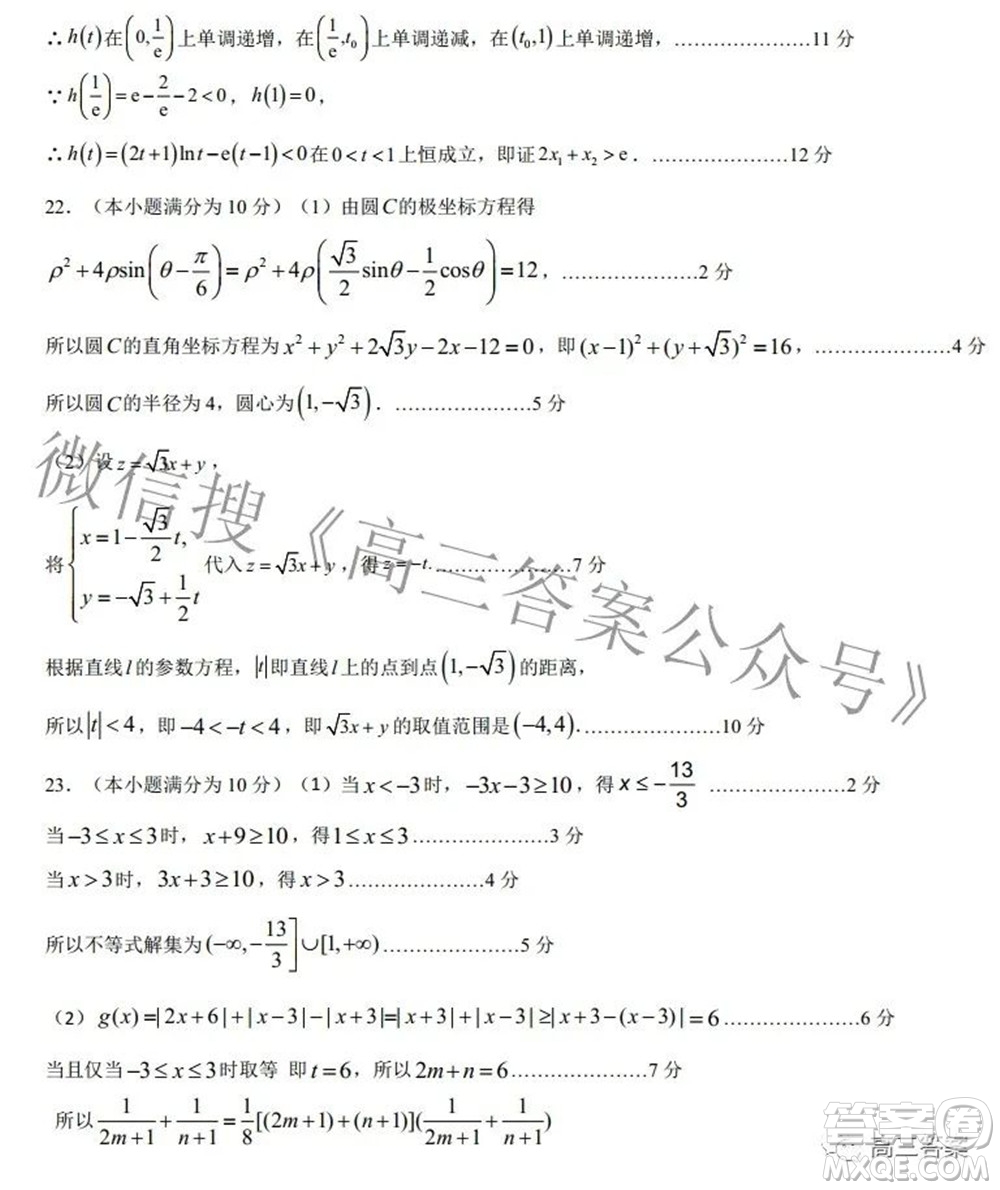 ∴h(t)在(0,1/e)上单调递增，在(1/e,t₀)上单调递减，在(t₀,1)上单调递增，……………………11 分
∵h(1/e)=e−2/e−2<0，h(1)=0，
∴h(t)=(2t+1)lnt−e(t−1)<0在0<t<1上恒成立，即证2x₁+x₂>e．……………………12 分
22．（本小题满分为 10 分）（1）由圆C的极坐标方程得
ρ²+4ρsin(θ−π/6)=ρ²+4ρ(√3/2 sinθ−1/2 cosθ)=12，……………………2 分
所以圆C的直角坐标方程为x²+y²+2√3y−2x−12=0，即(x−1)²+(y+√3)²=16，……………………4 分
所以圆C的半径为 4，圆心为(1,−√3)．……………………5 分
（2）设z=√3x+y，
将{x=1−√3/2 t, y=−√3+1/2 t 代入z=√3x+y，得z=−t……………………7 分
根据直线l的参数方程，|t|即直线l上的点到点(1,−√3)的距离，
所以|t|<4，即−4<−t<4，即√3x+y的取值范围是(−4,4)．……………………10 分
23．（本小题满分为 10 分）（1）当x<−3时，−3x−3≥10，得x≤−13/3……………………2 分
当−3≤x≤3时，x+9≥10，得1≤x≤3……………………3 分
当x>3时，3x+3≥10，得x>3……………………4 分
所以不等式解集为(−∞,−13/3]∪[1,+∞)……………………5 分
（2）g(x)=|2x+6|+|x−3|−|x+3|=|x+3|+|x−3|≥|x+3−(x−3)|=6……………………6 分
当且仅当−3≤x≤3时取等 即t=6，所以2m+n=6……………………7 分
所以1/(2m+1)+1/(n+1)=1/8[(2m+1)+(n+1)](1/(2m+1)+1/(n+1))
微信搜《高三答案公众号》
高三答案
答案圈
MXQE.COM